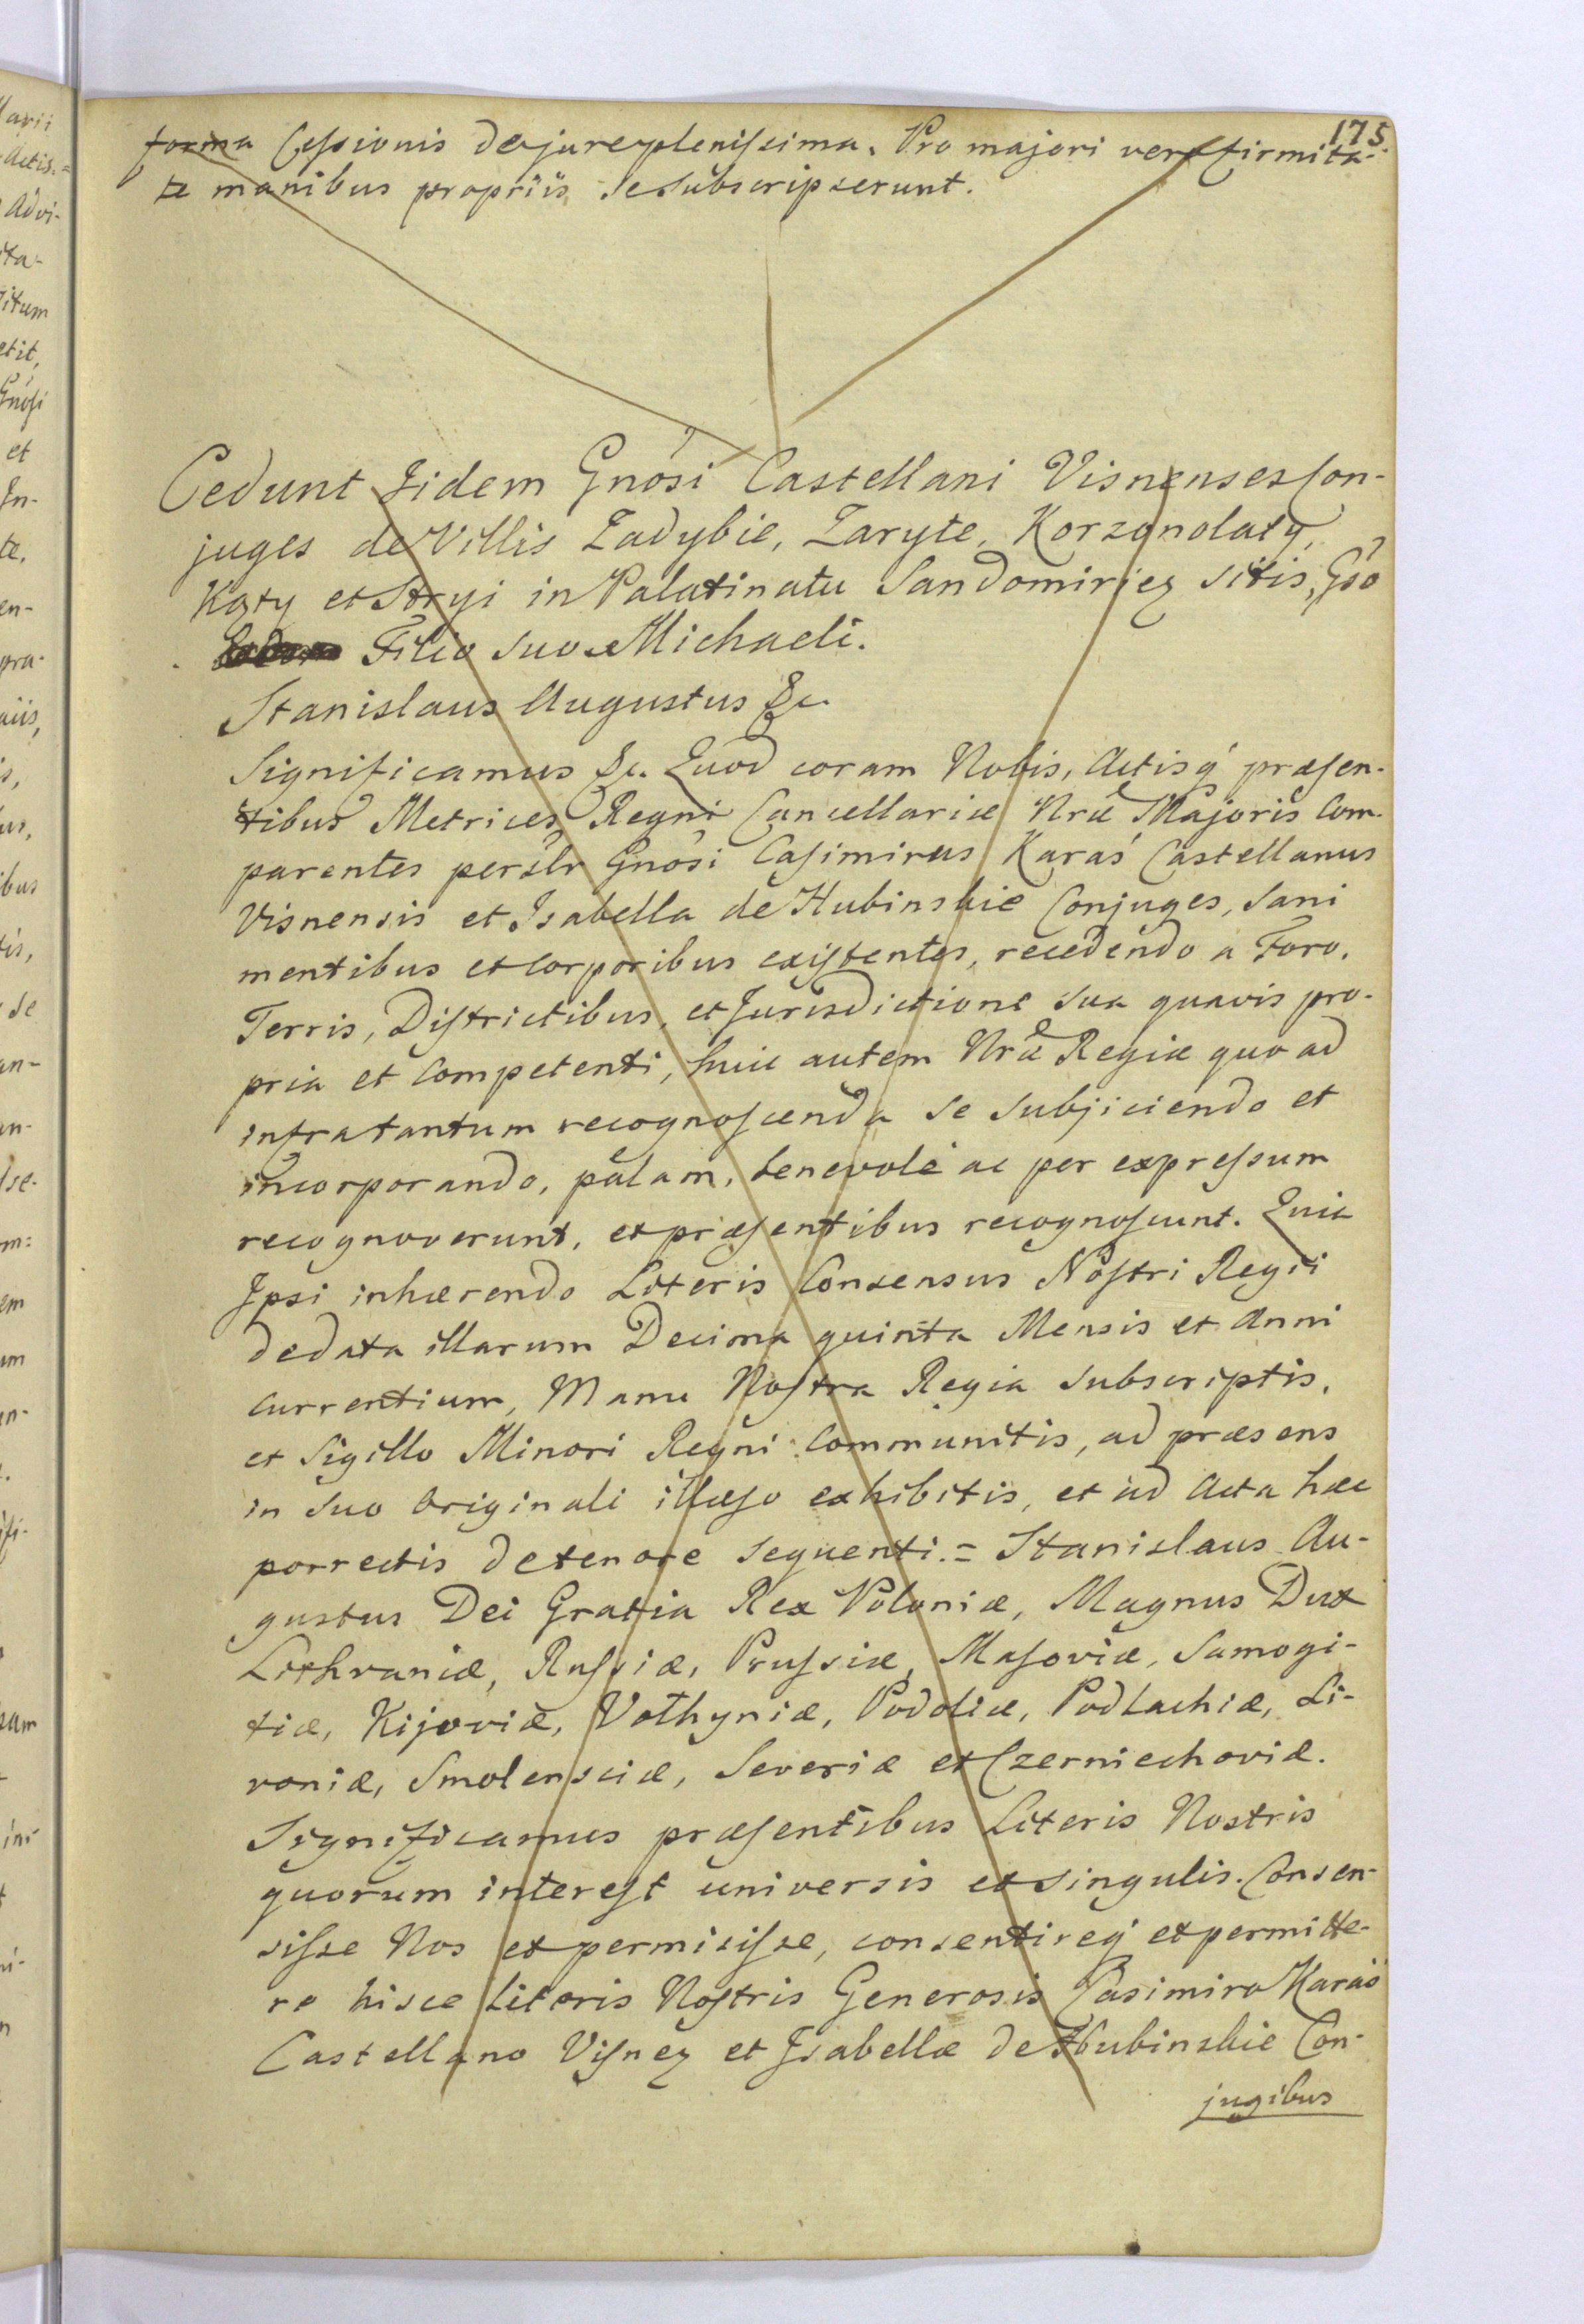 175
forma Cessionis de jure plenissima. Pro majori vero firmita-
te manibus propriis se subscripserunt.
Cedunt Iidem Gnosi Castellani Visnenses Con-
juges de Villis Zadybie, Zaryte, Korzonolaty,
Kąty et Stryi in Palatinatu Sandomiriez sitis, Gso
Filio suo Michaeli.
Stanislaus Augustus &c.
Significamus &c. Quod coram Nobis, Actisq' præsen-
tibus Metrices Regni Cancellariæ Nræ Majoris Com-
parentes perslr Gnosi Casimirus Karaś Castellanus
Visnensis et Isabella de Hubinskie Conjuges, sani
mentibus et corporibus existentes, recedendo a Foro,
Terris, Districtibus, et Jurisdictione sua quavis pro-
pria et competenti, huic autem Nræ Regiæ quo ad
infra tantum recognoscenda se subjiciendo et
incorporando, palam, benevole ac per expressum
recognoverunt, et præsentibus recognoscunt. Quia
Ipsi inhærendo Literis Consensus Nostri Regii
de data illarum Decima quinta Mensis et Anni
currentium, Manu Nostra Regia subscriptis,
et Sigillo Minori Regni communitis, ad præsens
in suo Originali illæso exhibitis, et ad Acta hæc
porrectis de tenore sequenti. = Stanislaus Au-
gustus Dei Gratia Rex Poloniæ, Magnus Dux
Lithvaniæ, Russiæ, Prussiæ, Masoviæ, Samogi-
tiæ, Kijoviæ, Volhyniæ, Podoliæ, Podlachiæ, Li-
voniæ, Smolensciæ, Severiæ et Czerniechoviæ.
Significamus præsentibus Literis Nostris
quorum interest universis et singulis. Consen-
sisse Nos et permisisse, consentireq' et permitte-
re hisce Literis Nostris Generosis Casimiro Karaś
Castellano Visnez et Isabellæ de Hubinskie Con-
jugibus